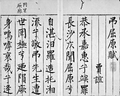 弔屈原賦
賈誼
恭承嘉惠兮竢罪
長沙仄聞屈原兮
自湛汨羅造托湘
流兮敬弔先生遭
世罔極兮廼隕厥
身嗚呼哀哉兮逢